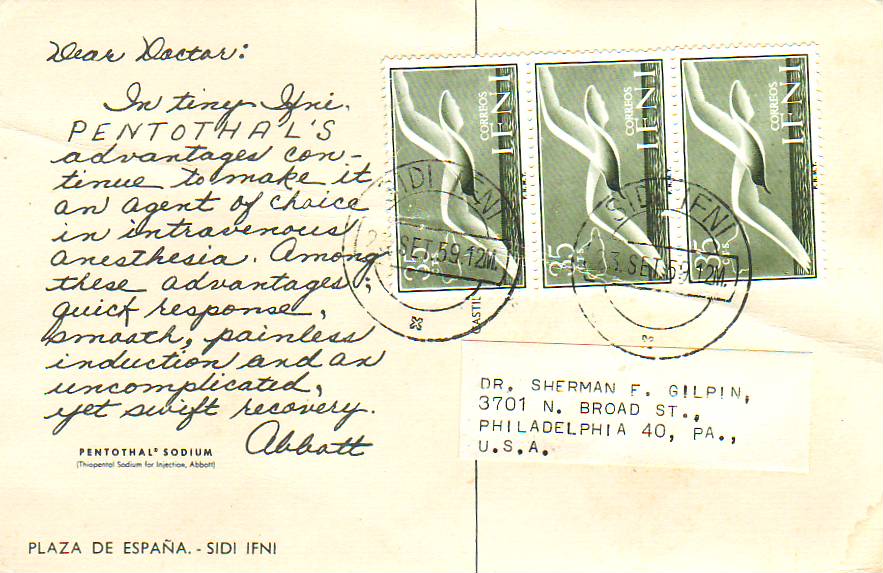 Dear Doctor:
In tiny Ifni,
PENTOTHAL'S
advantages con-
tinue to make it
an agent of choice
in intravenous
anesthesia. Among
these advantages;
quick response,
smooth, painless
induction and an
uncomplicated,
yet swift recovery.
Abbott
PENTOTHAL® SODIUM
(Thiopental Sodium for Injection, Abbott)
PLAZA DE ESPAÑA. - SIDI IFNI
CORREOS
IFNI
35
F.N.M.T.
CORREOS
IFNI
35
F.N.M.T.
CORREOS
IFNI
35 CTS.
F.N.M.T.
SIDI IFNI
SET.59.12M.
SIDI IFNI
3.SET.59.12M.
DR. SHERMAN F. GILPIN,
3701 N. BROAD ST.,
PHILADELPHIA 40, PA.,
U.S.A.